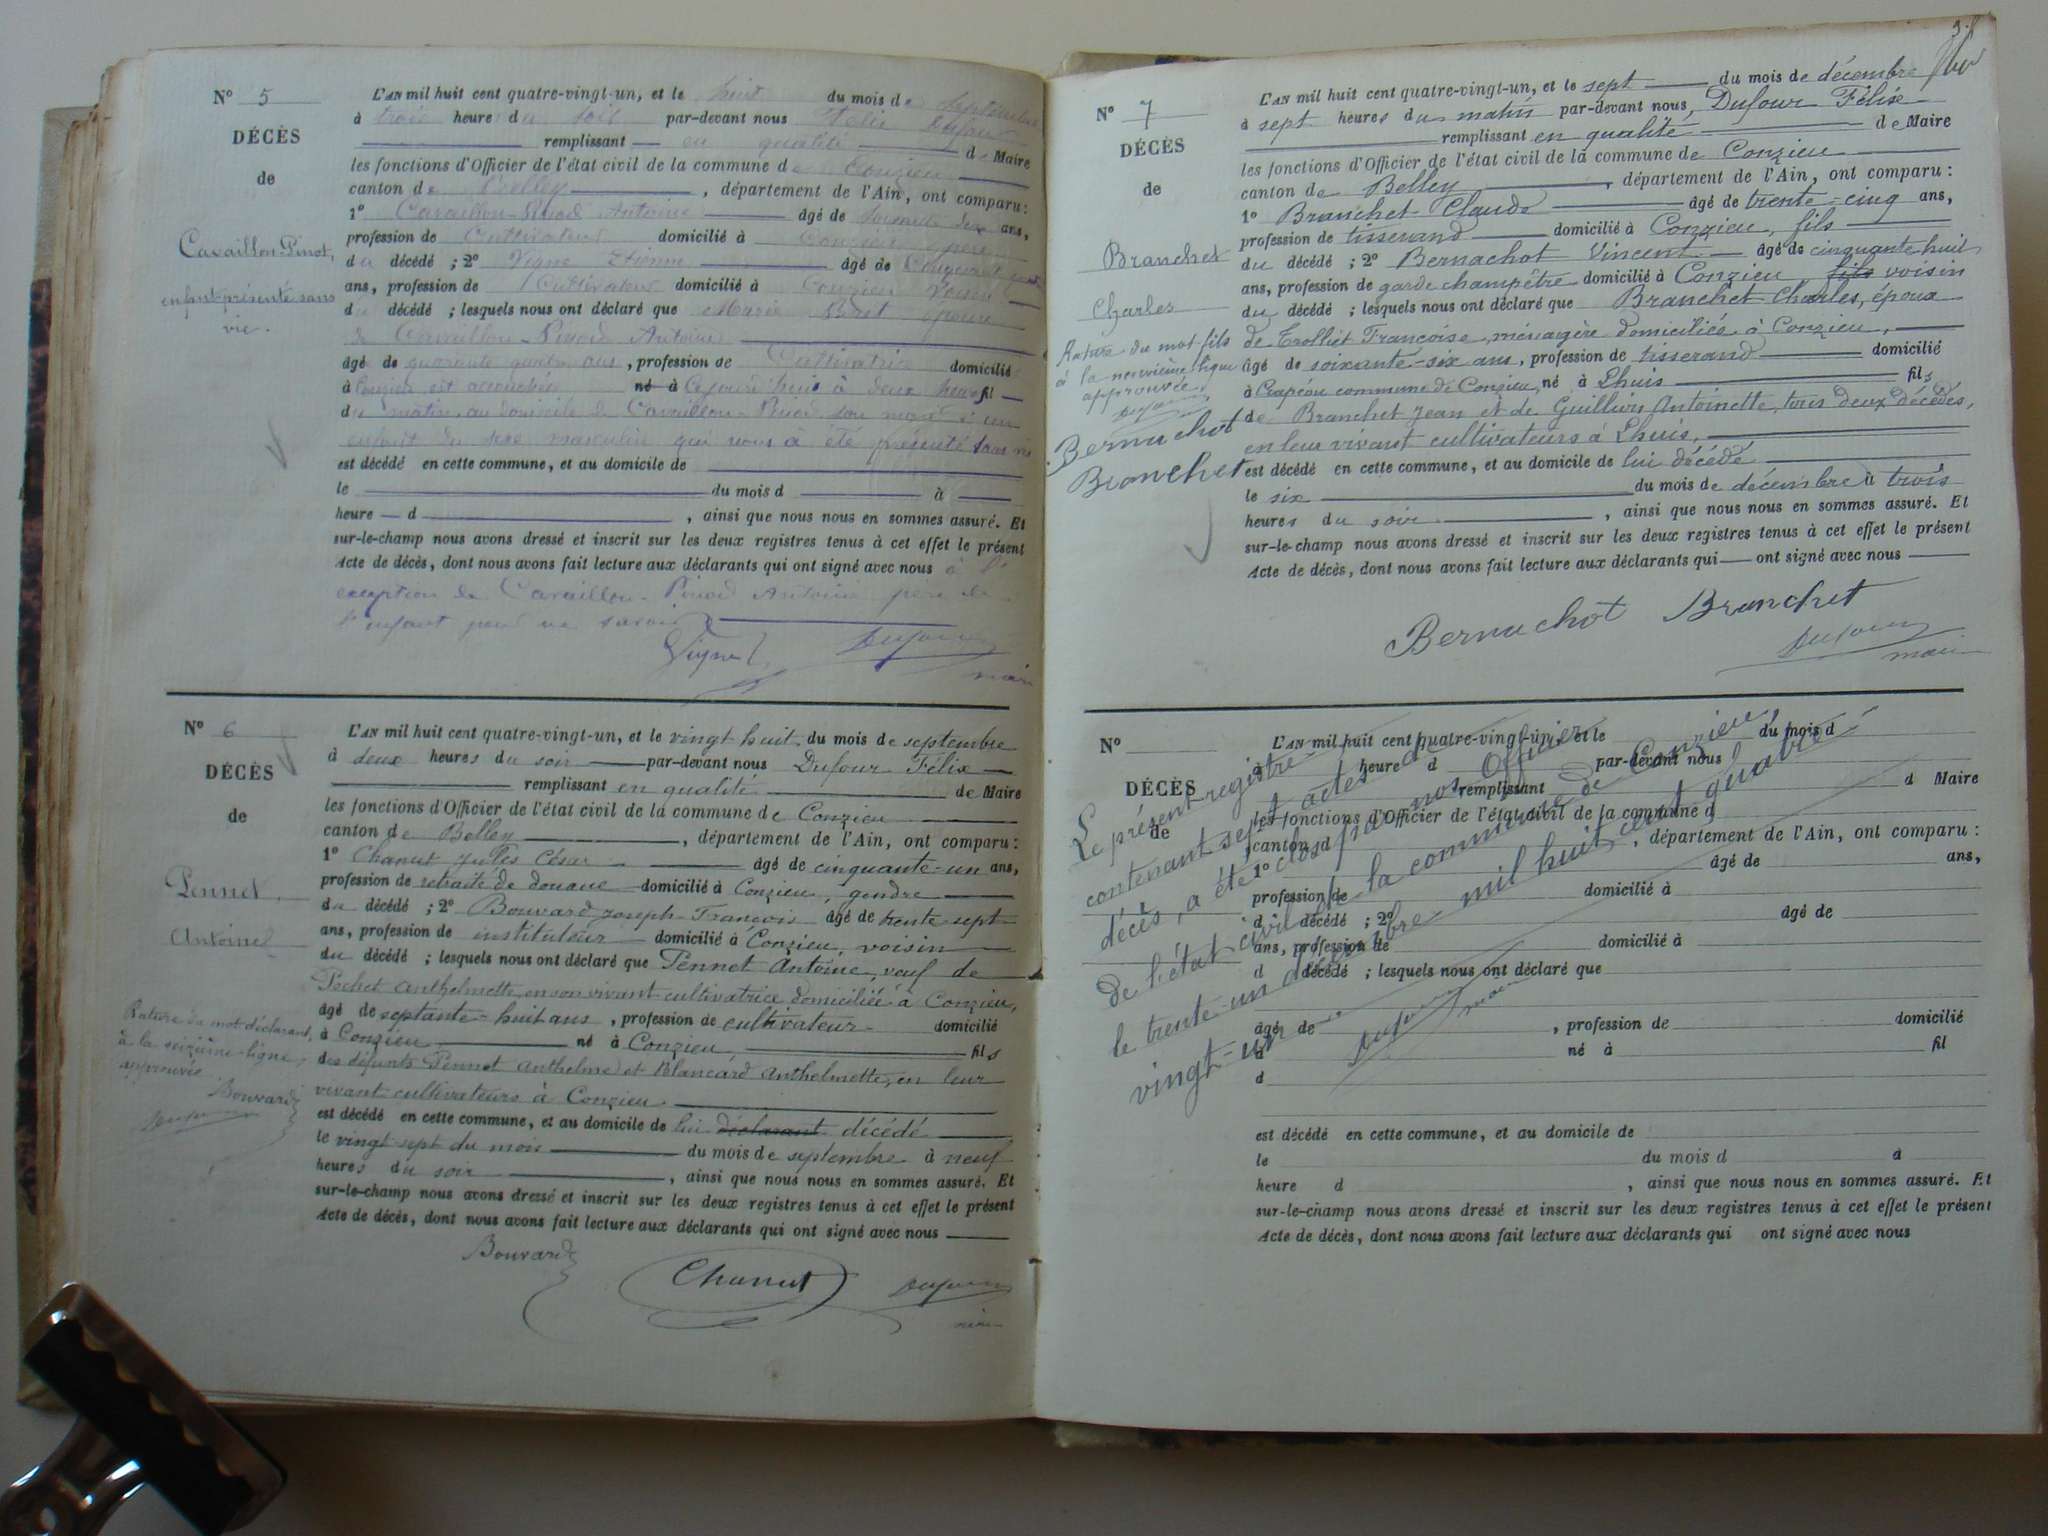 N° 5
DÉCÈS
de
Cavaillon-Pinod,
enfant présenté sans
vie.
L'AN mil huit cent quatre-vingt-un, et le huit du mois de septembre
à trois heures du soir par-devant nous Félix Dufour
remplissant en qualité de Maire
les fonctions d'Officier de l'état civil de la commune de Conzieu
canton de Belley, département de l'Ain, ont comparu :
1° Cavaillon-Pinod Antoine âgé de soixante deux ans,
profession de Cultivateur domicilié à Conzieu père
du décédé ; 2° Vigne Etienne âgé de
ans, profession de Cultivateur domicilié à Conzieu voisin
du décédé ; lesquels nous ont déclaré que Marie épouse
de Cavaillon-Pinod Antoine
âgé de quarante ans, profession de Cultivatrice domicilié
à Conzieu est accouchée né à Cejourd'hui à deux heures fil
du matin, au domicile de Cavaillon-Pinod son mari d'un
enfant du sexe masculin qui nous à été présenté sans vie
est décédé en cette commune, et au domicile de
le du mois d à
heure d , ainsi que nous nous en sommes assuré. Et
sur-le-champ nous avons dressé et inscrit sur les deux registres tenus à cet effet le présent
Acte de décès, dont nous avons fait lecture aux déclarants qui ont signé avec nous à l'
exception de Cavaillon-Pinod Antoine père de
l'enfant pour ne savoir
Vigne Dufour
maire
N° 6
DÉCÈS
de
Pennet
Antoine
Rature du mot déclarant,
à la seizième ligne,
approuvée
Bouvard
Dufour
L'AN mil huit cent quatre-vingt-un, et le vingt huit du mois de septembre
à deux heures du soir par-devant nous Dufour Félix
remplissant en qualité de Maire
les fonctions d'Officier de l'état civil de la commune de Conzieu
canton de Belley, département de l'Ain, ont comparu :
1° Chanut Jules César âgé de cinquante-un ans,
profession de retraité de douane domicilié à Conzieu, gendre
du décédé ; 2° Bouvard Joseph-François âgé de trente sept
ans, profession de instituteur domicilié à Conzieu, voisin
du décédé ; lesquels nous ont déclaré que Pennet Antoine, veuf de
Pochet Anthelmette, en son vivant cultivatrice domiciliée à Conzieu,
âgé de septante-huit ans, profession de cultivateur domicilié
à Conzieu né à Conzieu, fils
des défunts Pennet Anthelme et Blancard Anthelmette, en leur
vivant cultivateurs à Conzieu
est décédé en cette commune, et au domicile de lui déclarant décédé
le vingt sept du mois du mois de septembre à neuf
heures du soir, ainsi que nous nous en sommes assuré. Et
sur-le-champ nous avons dressé et inscrit sur les deux registres tenus à cet effet le présent
Acte de décès, dont nous avons fait lecture aux déclarants qui ont signé avec nous
Bouvard Chanut Dufour
maire
N° 7
DÉCÈS
de
Branchet
Charles
Rature du mot fils
à la neuvième ligne
approuvée
Dufour
Bernachot
Branchet
L'AN mil huit cent quatre-vingt-un, et le sept du mois de décembre
à sept heures du matin par-devant nous, Dufour Félix
remplissant en qualité de Maire
les fonctions d'Officier de l'état civil de la commune de Conzieu
canton de Belley, département de l'Ain, ont comparu :
1° Branchet Claude âgé de trente-cinq ans,
profession de tisserand domicilié à Conzieu, fils
du décédé ; 2° Bernachot Vincent âgé de cinquante huit
ans, profession de garde champêtre domicilié à Conzieu, fils voisin
du décédé ; lesquels nous ont déclaré que Branchet Charles, époux
de Trolliet Françoise, ménagère domiciliée à Conzieu,
âgé de soixante-six ans, profession de tisserand domicilié
à Crapéou commune de Conzieu, né à Lhuis fils
de Branchet Jean et de Guillion Antoinette, tous deux décédés,
en leur vivant cultivateurs à Lhuis,
est décédé en cette commune, et au domicile de lui décédé
le six du mois de décembre à trois
heures du soir, ainsi que nous nous en sommes assuré. Et
sur-le-champ nous avons dressé et inscrit sur les deux registres tenus à cet effet le présent
Acte de décès, dont nous avons fait lecture aux déclarants qui ont signé avec nous
Bernachot Branchet
Dufour
maire
N°
DÉCÈS
de
L'AN mil huit cent quatre-vingt-un, et le du mois d
à heure d par-devant nous
remplissant d Maire
les fonctions d'Officier de l'état civil de la commune d
canton d , département de l'Ain, ont comparu :
1° âgé de ans,
profession de domicilié à
d décédé ; 2° âgé de
ans, profession de domicilié à
d décédé ; lesquels nous ont déclaré que
âgé de , profession de domicilié
à né à fil
d
est décédé en cette commune, et au domicile de
le du mois d à
heure d , ainsi que nous nous en sommes assuré. Et
sur-le-champ nous avons dressé et inscrit sur les deux registres tenus à cet effet le présent
Acte de décès, dont nous avons fait lecture aux déclarants qui ont signé avec nous
Le présent registre
contenant sept actes de
décès, a été clos par nos Officier
de l'état civil de la commune de Conzieu,
le trente-un décembre mil huit cent quatre
vingt-un
Dufour
maire